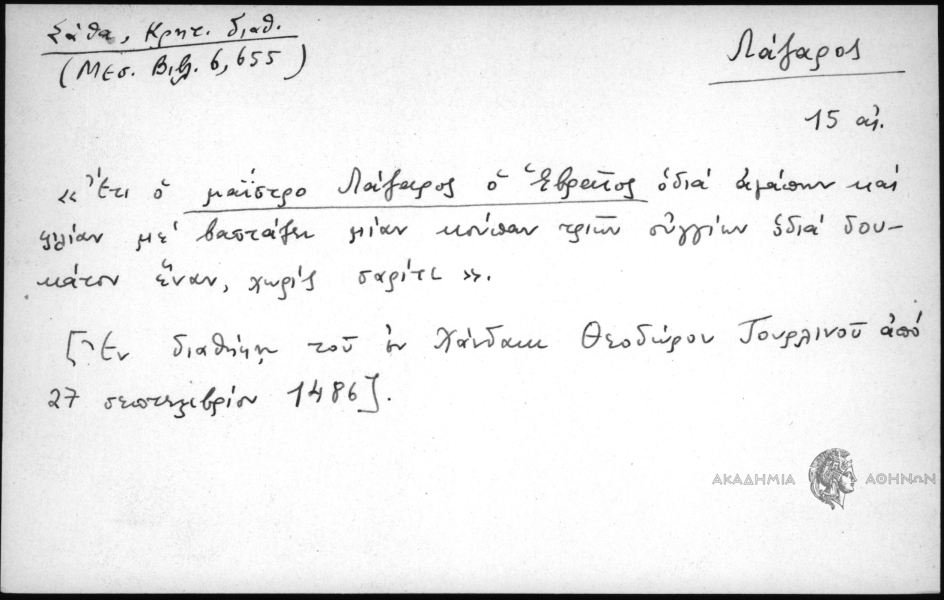 Σάθα, Κρητ. διαθ.
(Μεσ. Βιβ. 6, 655)
Λάζαρος
15 αἰ.
«Ἔτι ὁ μαΐστρο Λάζαρος ὁ Ἑβραῖος ὁδιὰ ἀγάπην καὶ
φιλίαν μὲ βαστάζει μίαν κούπαν τριῶν οὐγγίων ὁδιὰ δου-
κάτον ἕναν, χωρὶς χαρίτι».
[Ἐν διαθήκῃ τοῦ ἐν Χάνδακι Θεοδώρου Τουρλινοῦ ἀπὸ
27 σεπτεμβρίου 1486].
ΑΚΑΔΗΜΙΑ ΑΘΗΝΩΝ